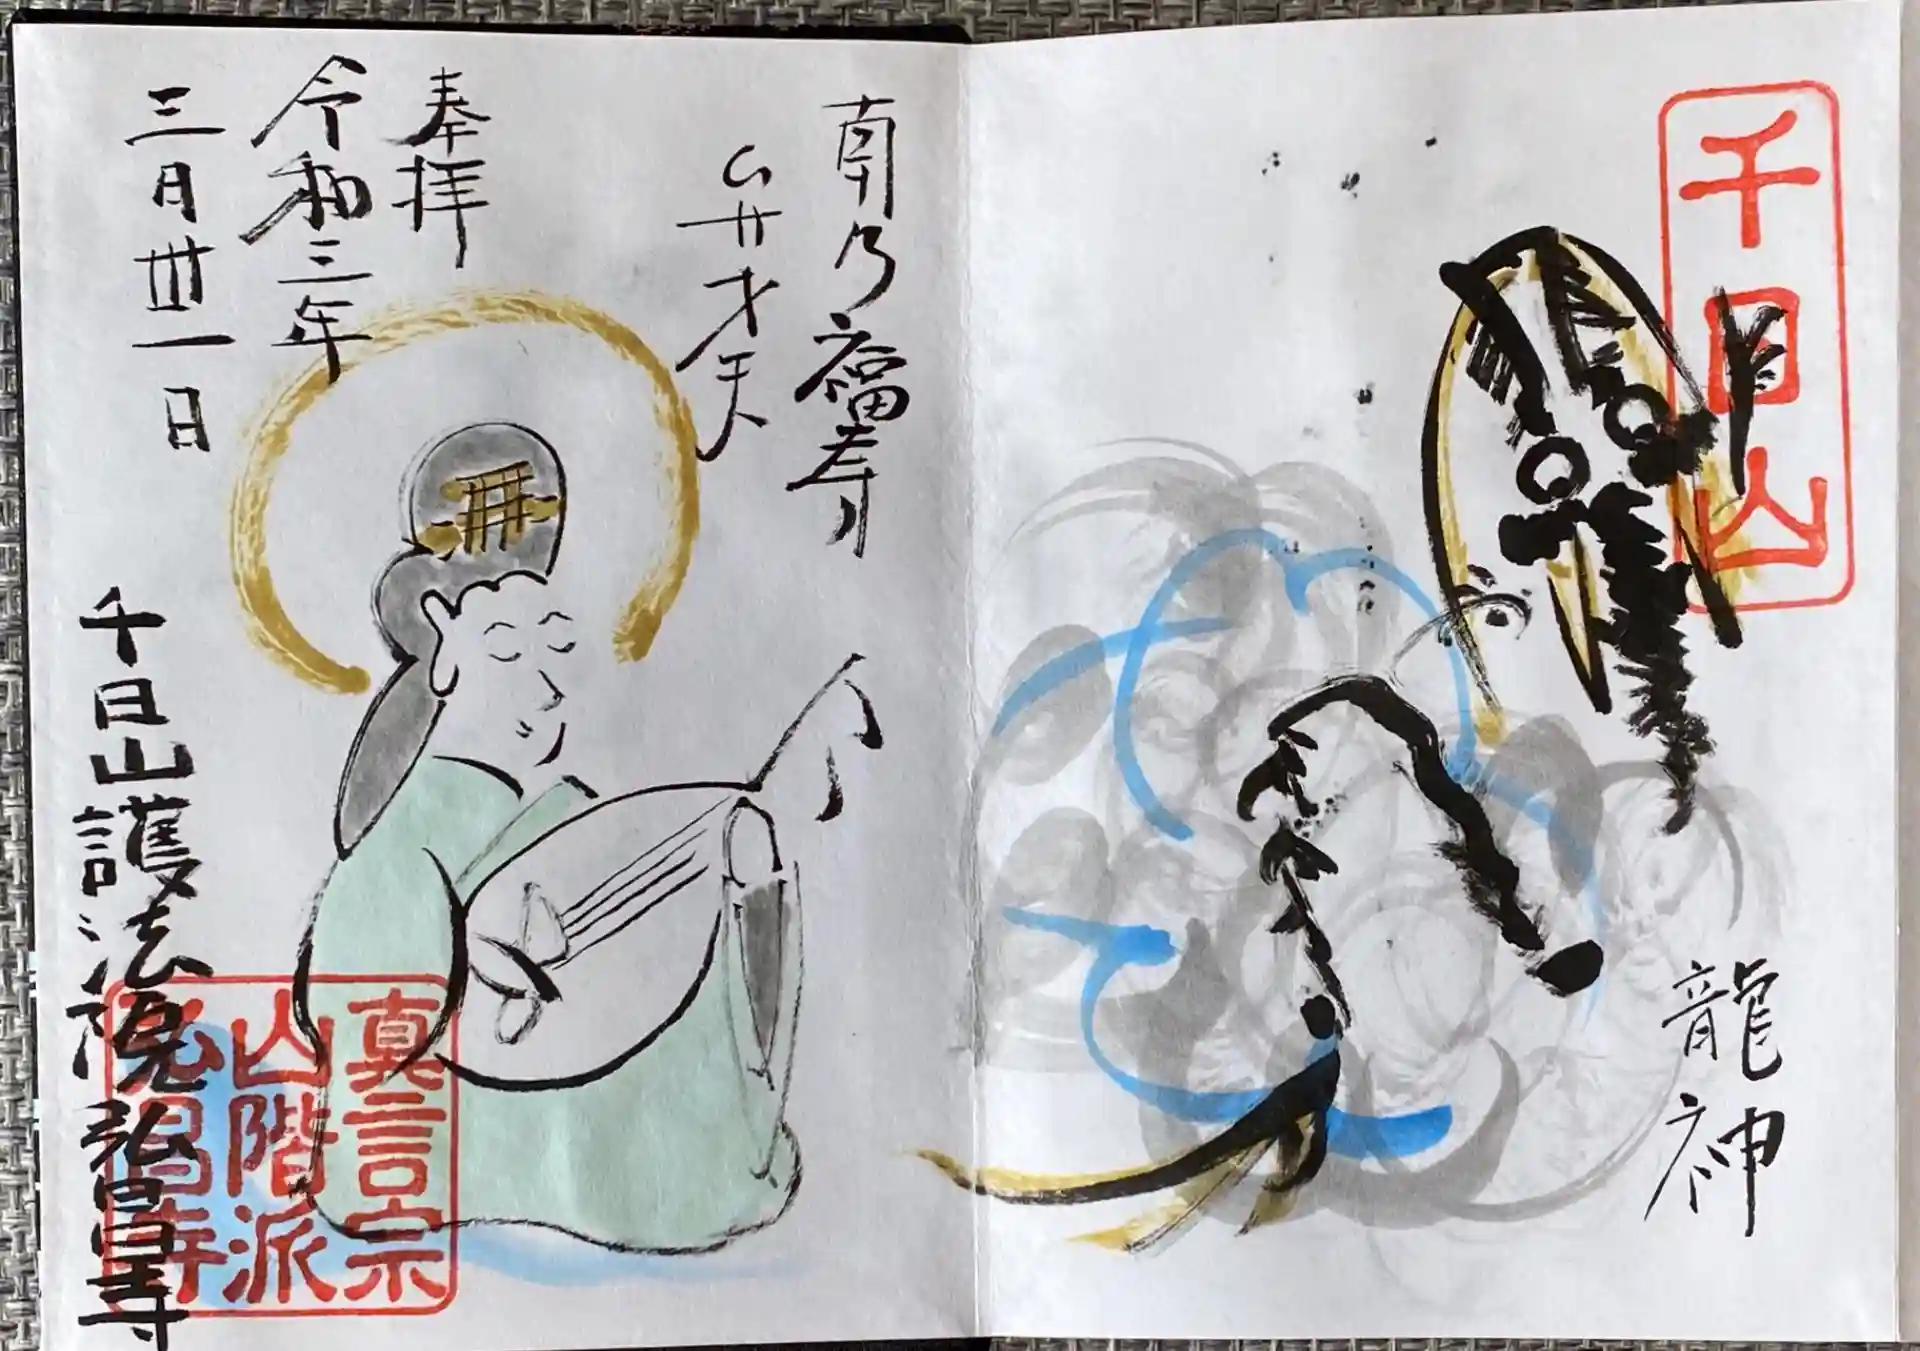 千日山
龍神
南乃福寿
弁才天
奉拝
令和三年
三月卅一日
千日山護法院弘昌寺
真言宗
山階派
弘昌寺